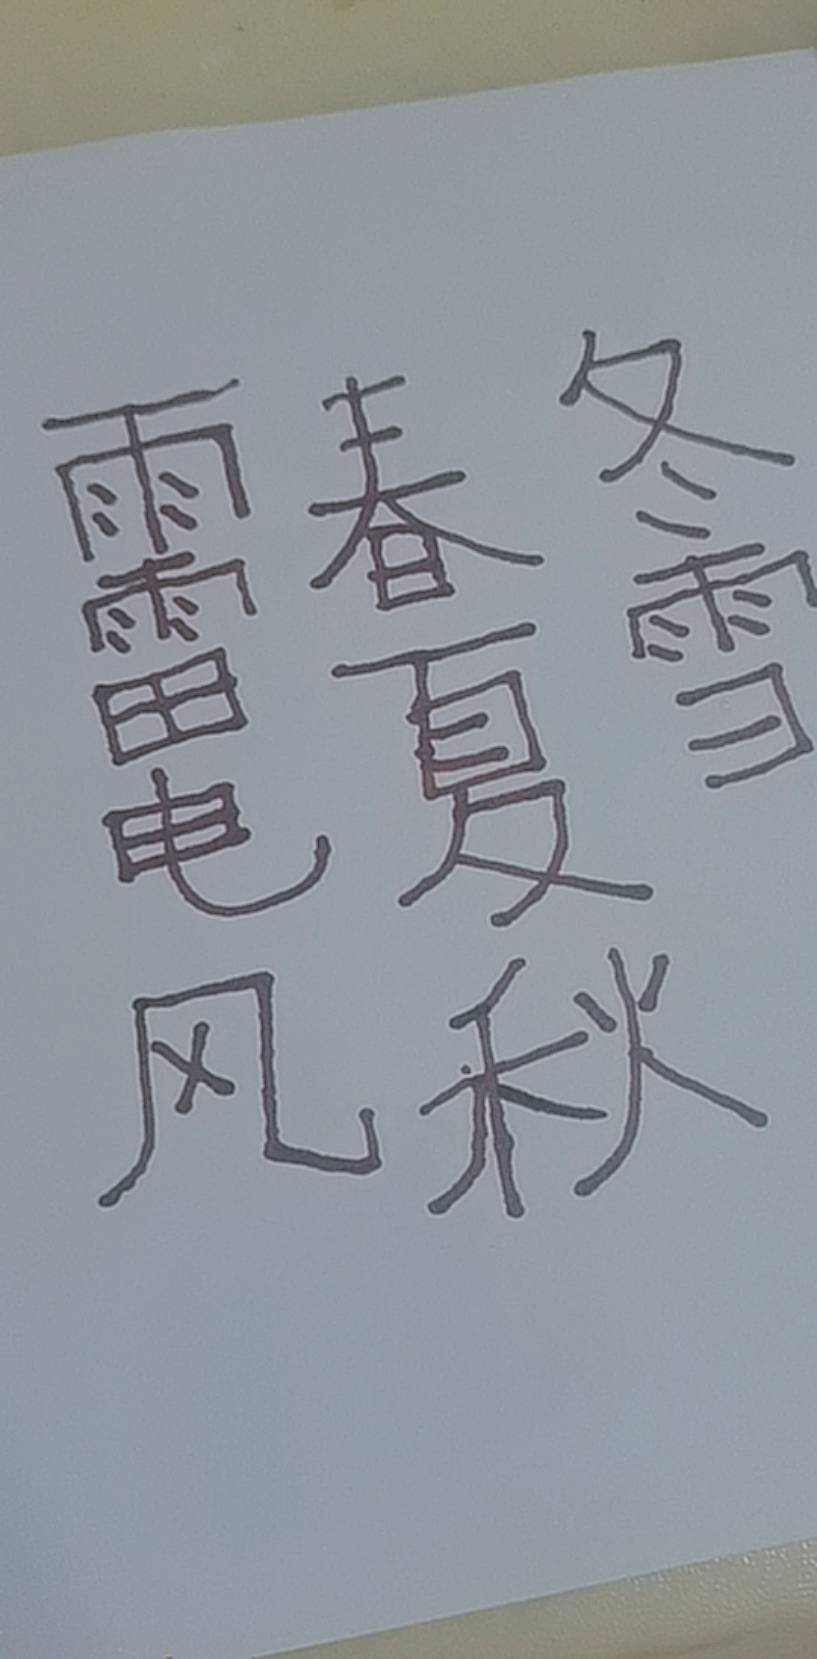 雨雷电风
春夏秋
冬雪